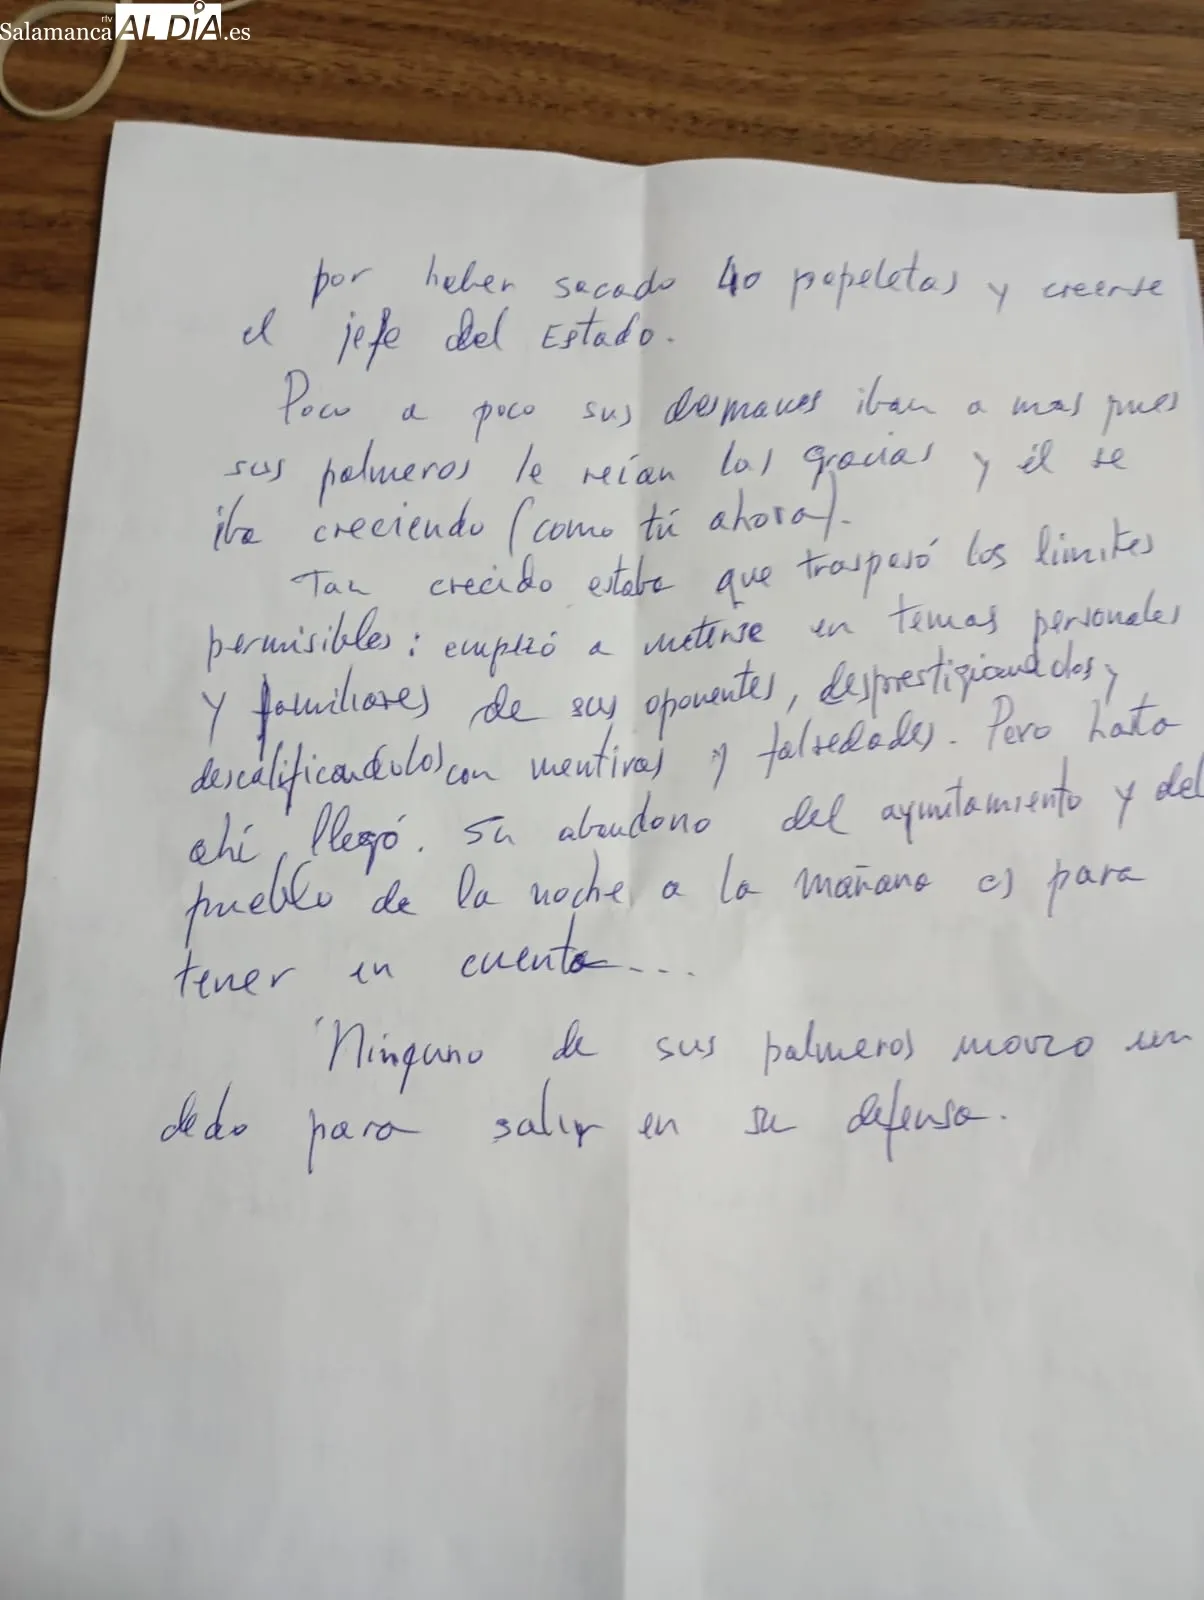 Salamanca rtv AL DÍA.es
por haber sacado 40 papeletas y creerse
el jefe del Estado.
Poco a poco sus desmanes iban a mas pues
sus palmeros le reían las gracias y él se
iba creciendo (como tú ahora).
Tan crecido estaba que traspasó los límites
permisibles: empezó a meterse en temas personales
y familiares de sus oponentes, desprestigiandolos y
descalificandolos con mentiras y falsedades. Pero hasta
ahí llegó. Su abandono del ayuntamiento y del
pueblo de la noche a la mañana es para
tener en cuenta....
Ninguno de sus palmeros movio un
dedo para salir en su defensa.